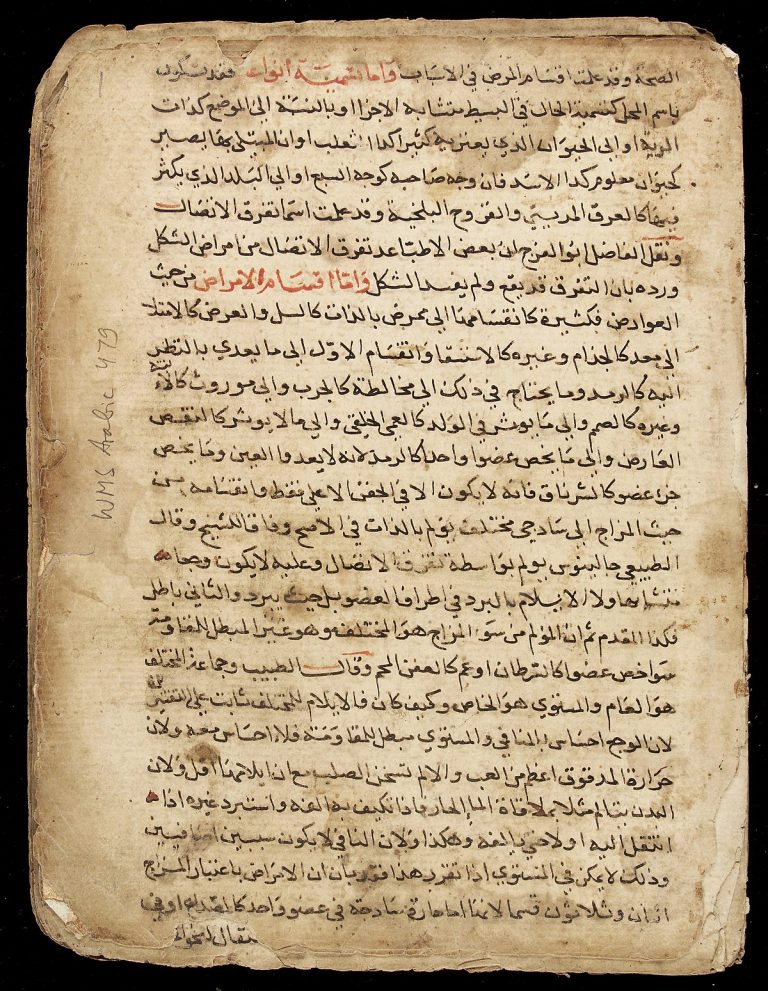 الصحة وقد علمت اقسام المرض في الاسباب واما تسمية انواعه فقد تكون
باسم المحل كتسمية الحال في البسيط متشابه الاجزا او بالنسبة الى الموضع كذات
الرية او الى الحيوان الذي يعتريه كثيرا كداا لثعلب او ان المبتلى بها يصير
كحيوان معلوم كدا الاسد فان وجه صاحبه كوجه السبع او الى البلد الذي يكثر
فيها كالعرق المديني والقروح البلخية وقد علمت اسما تفرق الاتصال
ونقل الفاضل ابو الفرج ان بعض الاطبا عد تفرق الاتصال من امراض الشكل
ورده بان التفرق قد يقع ولم يفسد الشكل واما اقسام الامراض من حيث
العوارض فكثيرة كانقسامها الى ممرض بالذات كالسل والعرض كالامتلا
الى معد كالجذام وغيره كالاستسقا وانقسام الاول الى ما يعدي بالنظر
اليه كالرمد وما يحتاج في ذلك الى مخالطة كالجرب والى موروث
وغيره كالصمم والى ما يوثر في الولد كالعمى الخلقي والى ما لا يوثر كالنقص
العارض والى ما يخص عضوا واحدا كالرمد لانه لا يعدوا العين وما يخص
جزء عضو كالشرناق فانه لا يكون الا في الجفن الاعلى فقط وانقسامه من
حيث المزاج الى ساذجي مختلف يولم بالذات في الاصح وفاقا للشيخ وقال
الطبيعي جالينوس يولم بواسطة تفرق الاتصال وعليه لا يكون وجعا
متشابها ولا الايلام بالبرد في اطراف العضو بل حيث يبرد والثاني باطل
فكذا المقدم ثم ان المولم من سو المزاج هو المختلف وهو غير المبطل للمقاومة
سوا خص عضوا كالسرطان او عم كالعفن المحم وقال الطبيب وجماعة المختلف
هو العام والمستوي هو الخاص وكيف كان فالايلام للمختلف ثابت على
لان الوجع احساس بالمنافي والمستوي مبطل للمقاومة فلا احساس معه ولان
حرارة المدقوق اعظم من الغب والالم لتسخن الصلب مع ان ايلامها اقل ولان
البدن يتالم مثلا بملاقاة الما الحار فاذا تكيف به الفه واستبرد غيره اذا
انتقل اليه اولا حتي يالفه وهكذا ولان المنافي لا يكون سببين اضافيين
وذلك لا يمكن في المستوي اذا تقرر هذا فقد بان ان الامراض باعتبار المزاج
اثنان وثلاثون قسما لانها اما حارة ساذجة في عضو واحد كالصداع او في
WMS Arabic 479
1